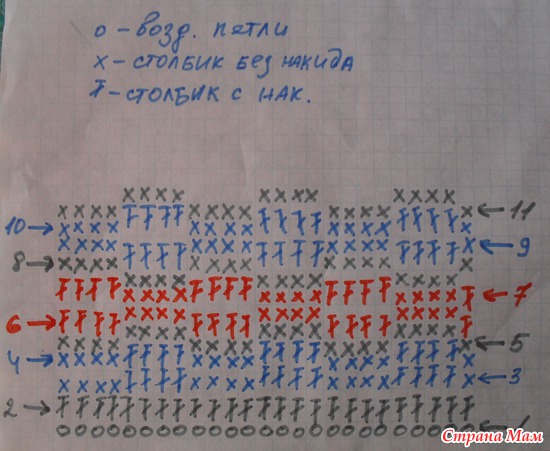 о – возд. петли
х – столбик без накида
Ŧ – столбик с нак.
11
10
9
8
7
6
5
4
3
2
1
Страна Мам